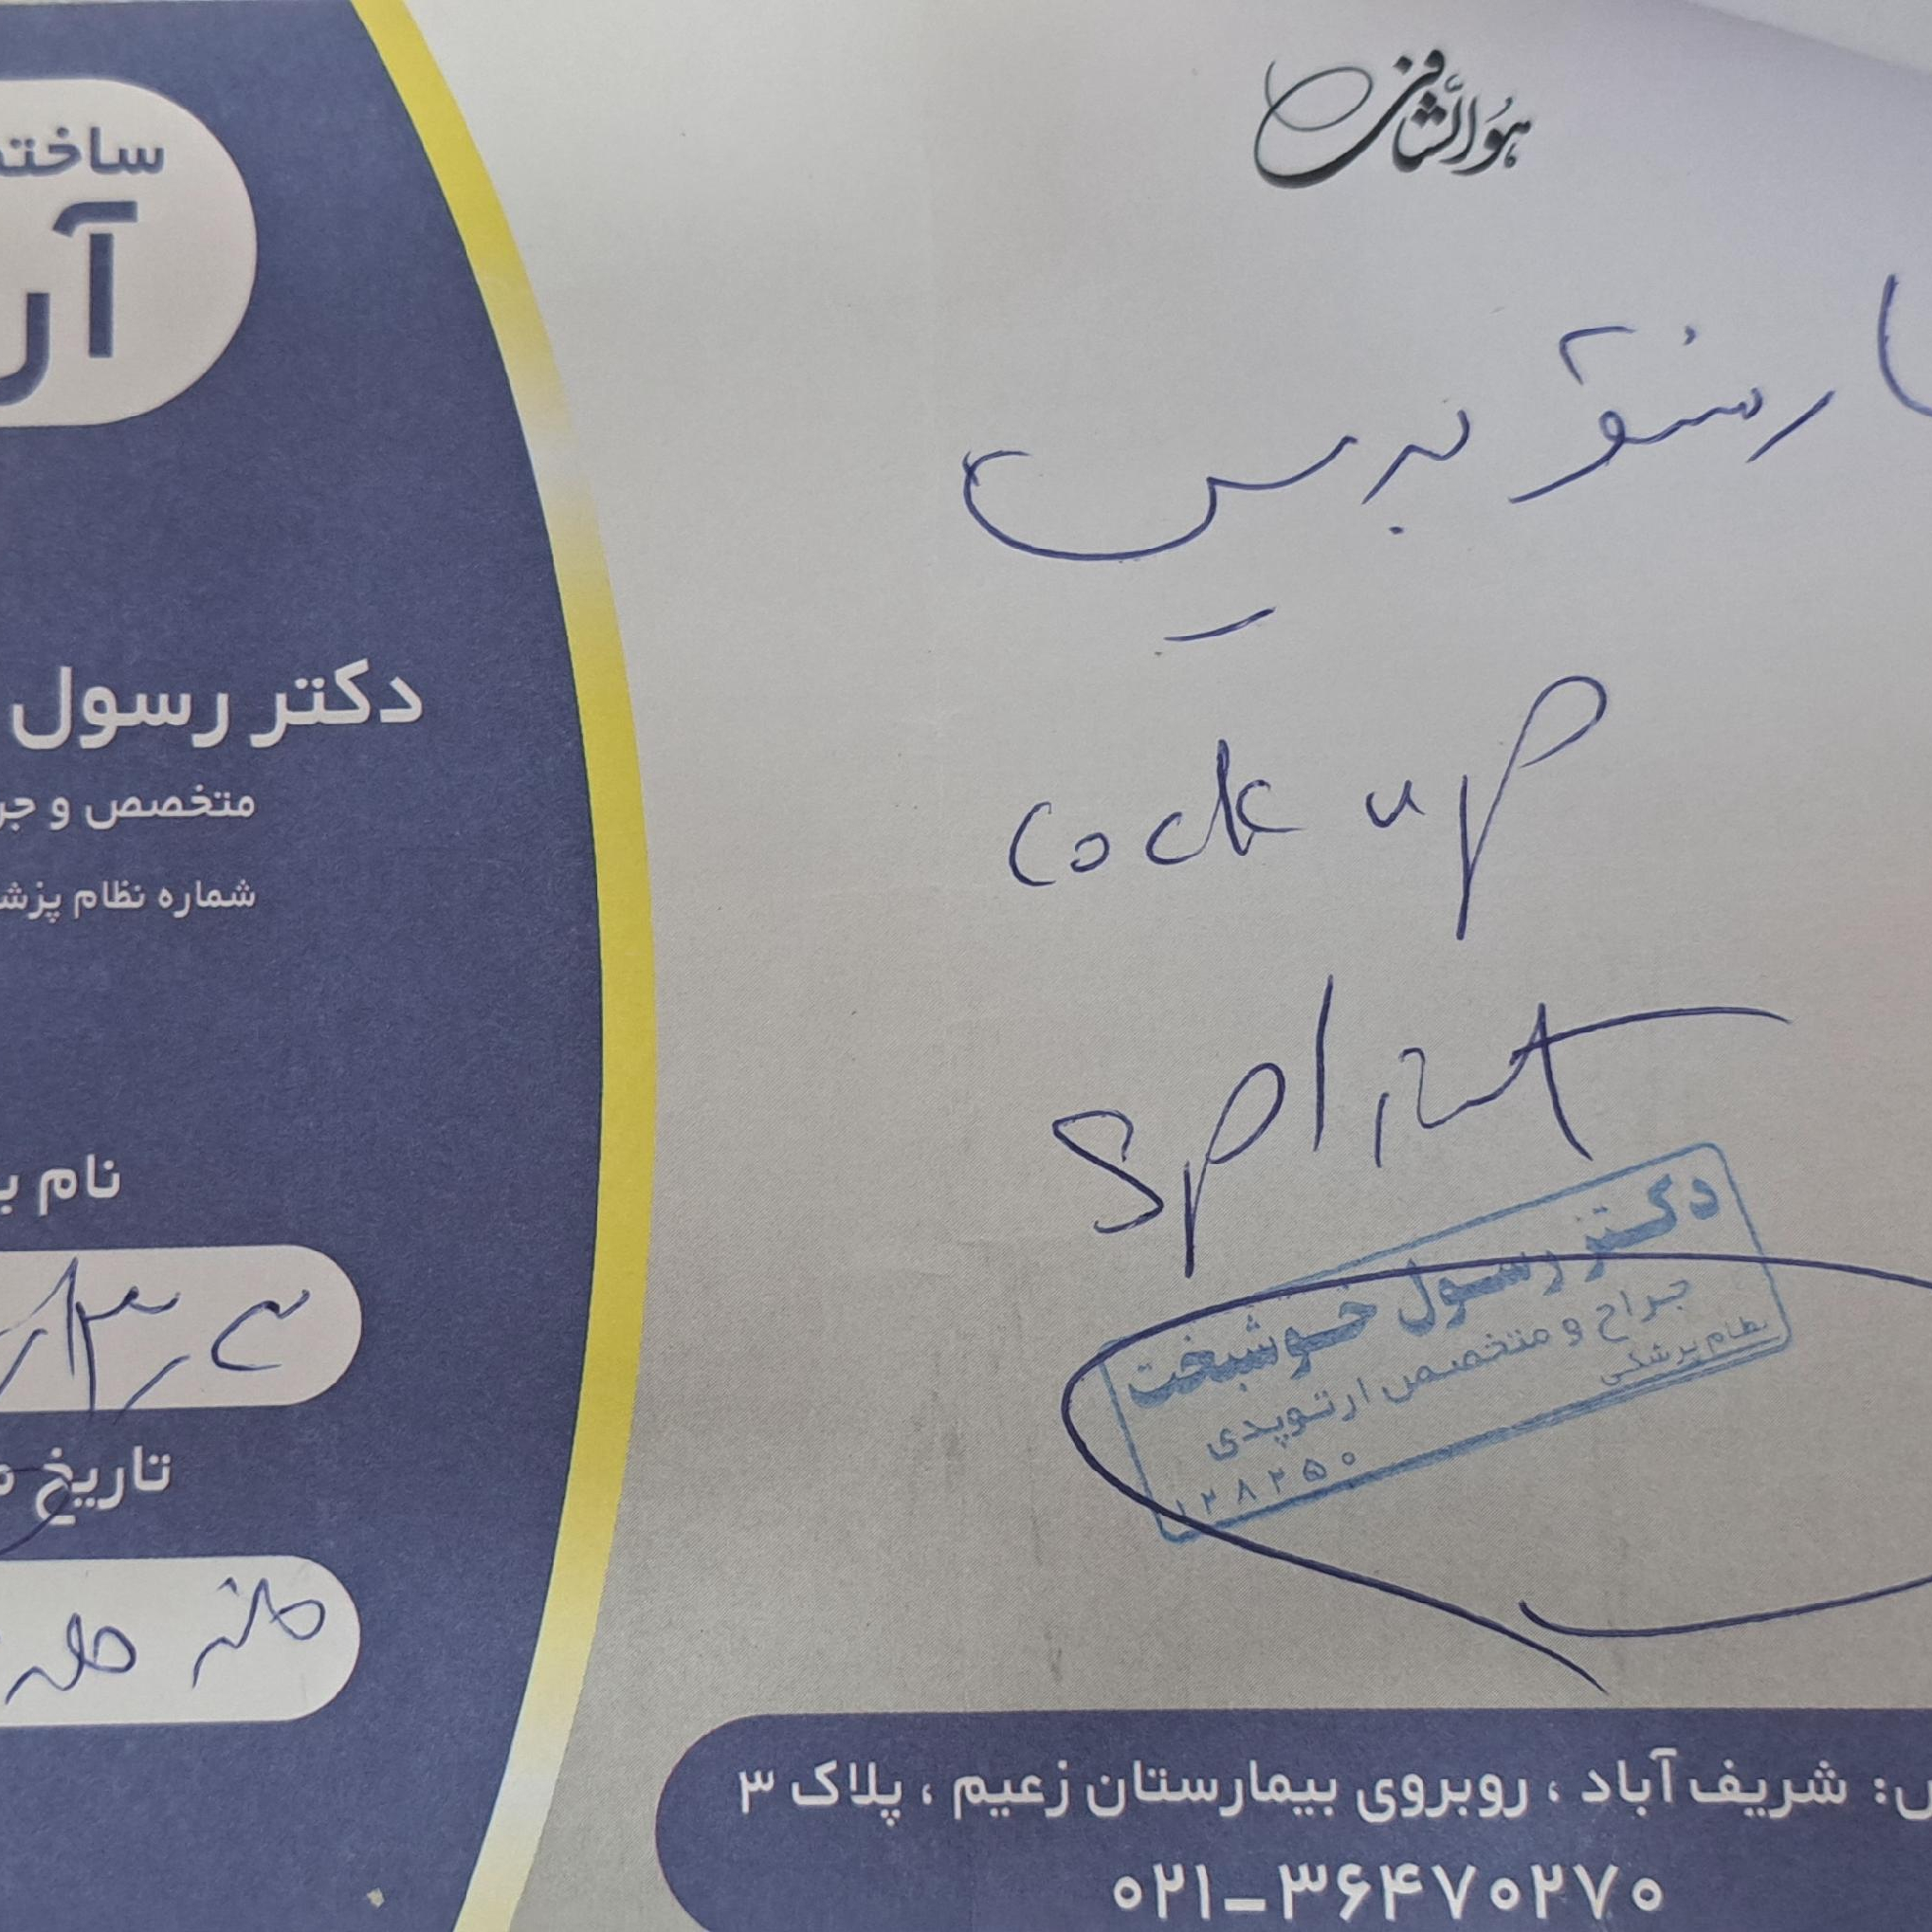 هوالشافی
cock up
splint
دکتر رسول خوشبخت
جراح و متخصص ارتوپدی
نظام پزشکی
۱۲۸۲۵۰
ساخته
آر
دکتر رسول
متخصص و جر
شماره نظام پزش
نام ب
تاریخ م
س: شریف آباد ، روبروی بیمارستان زعیم ، پلاک ۳
۰۲۱-۳۶۴۷۰۲۷۰